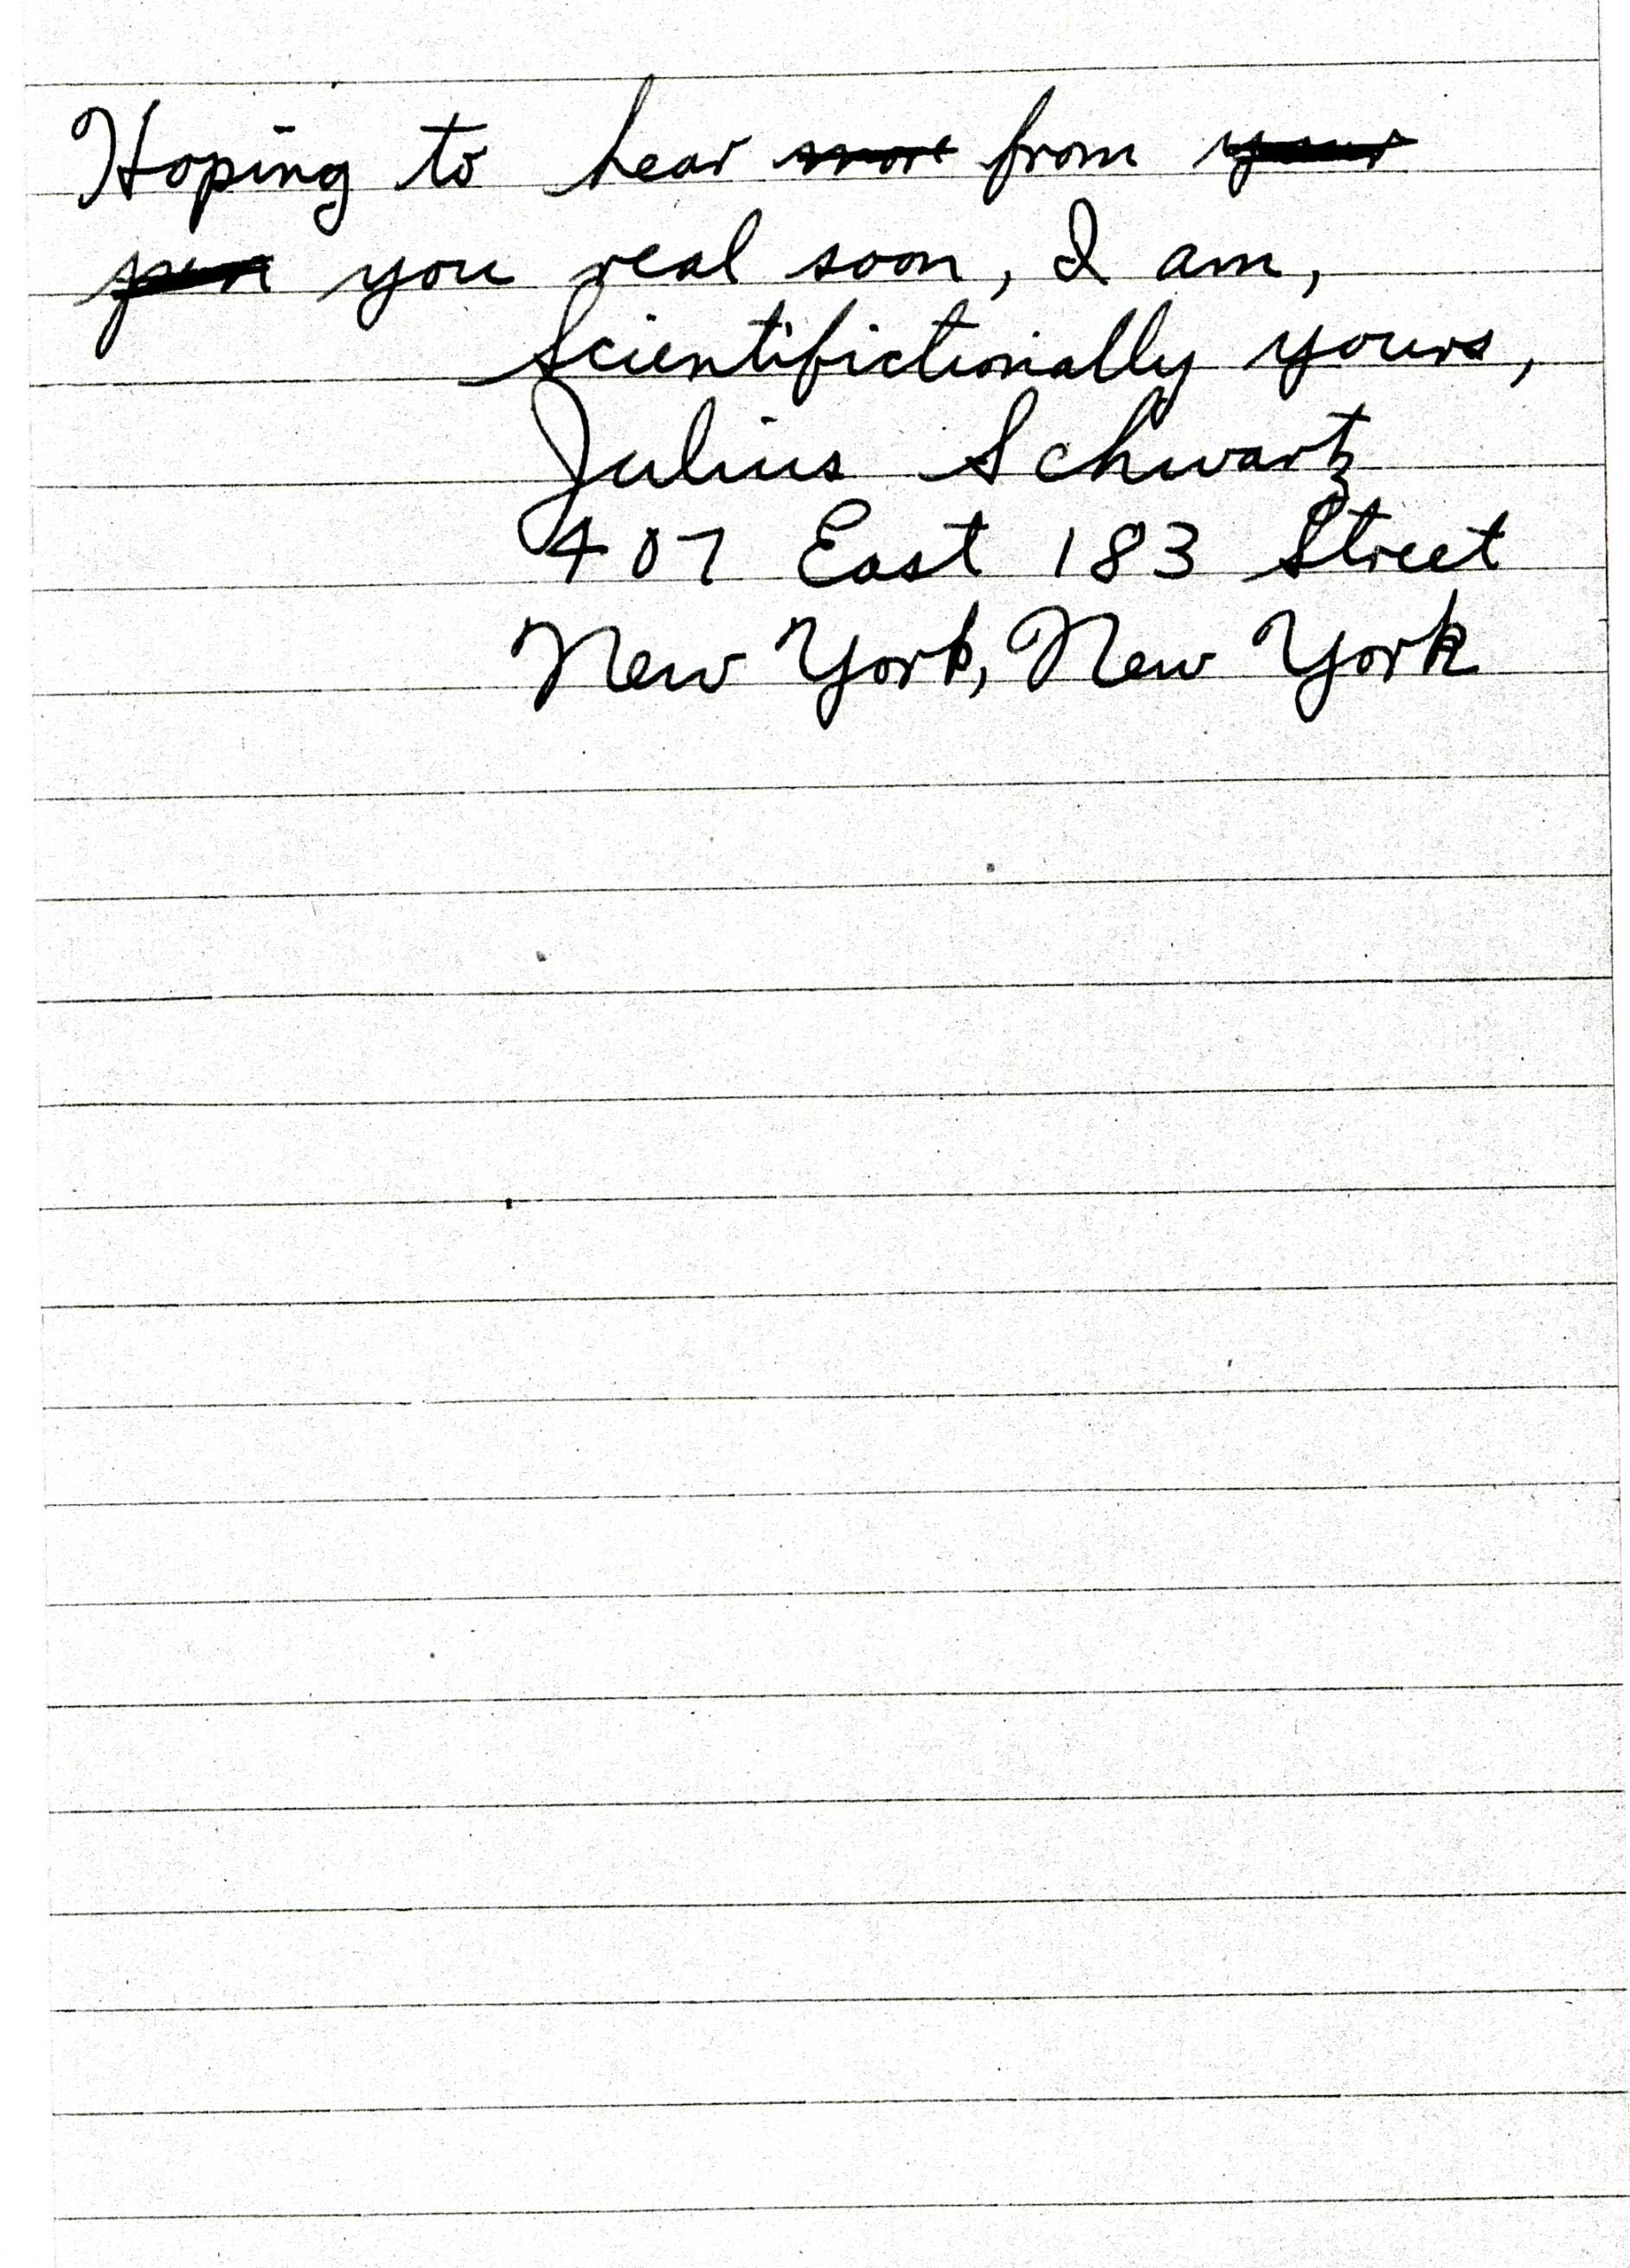 Hoping to hear more from your
pen you real soon, I am,
Scientifictionally yours,
Julius Schwartz
407 East 183 Street
New York, New York